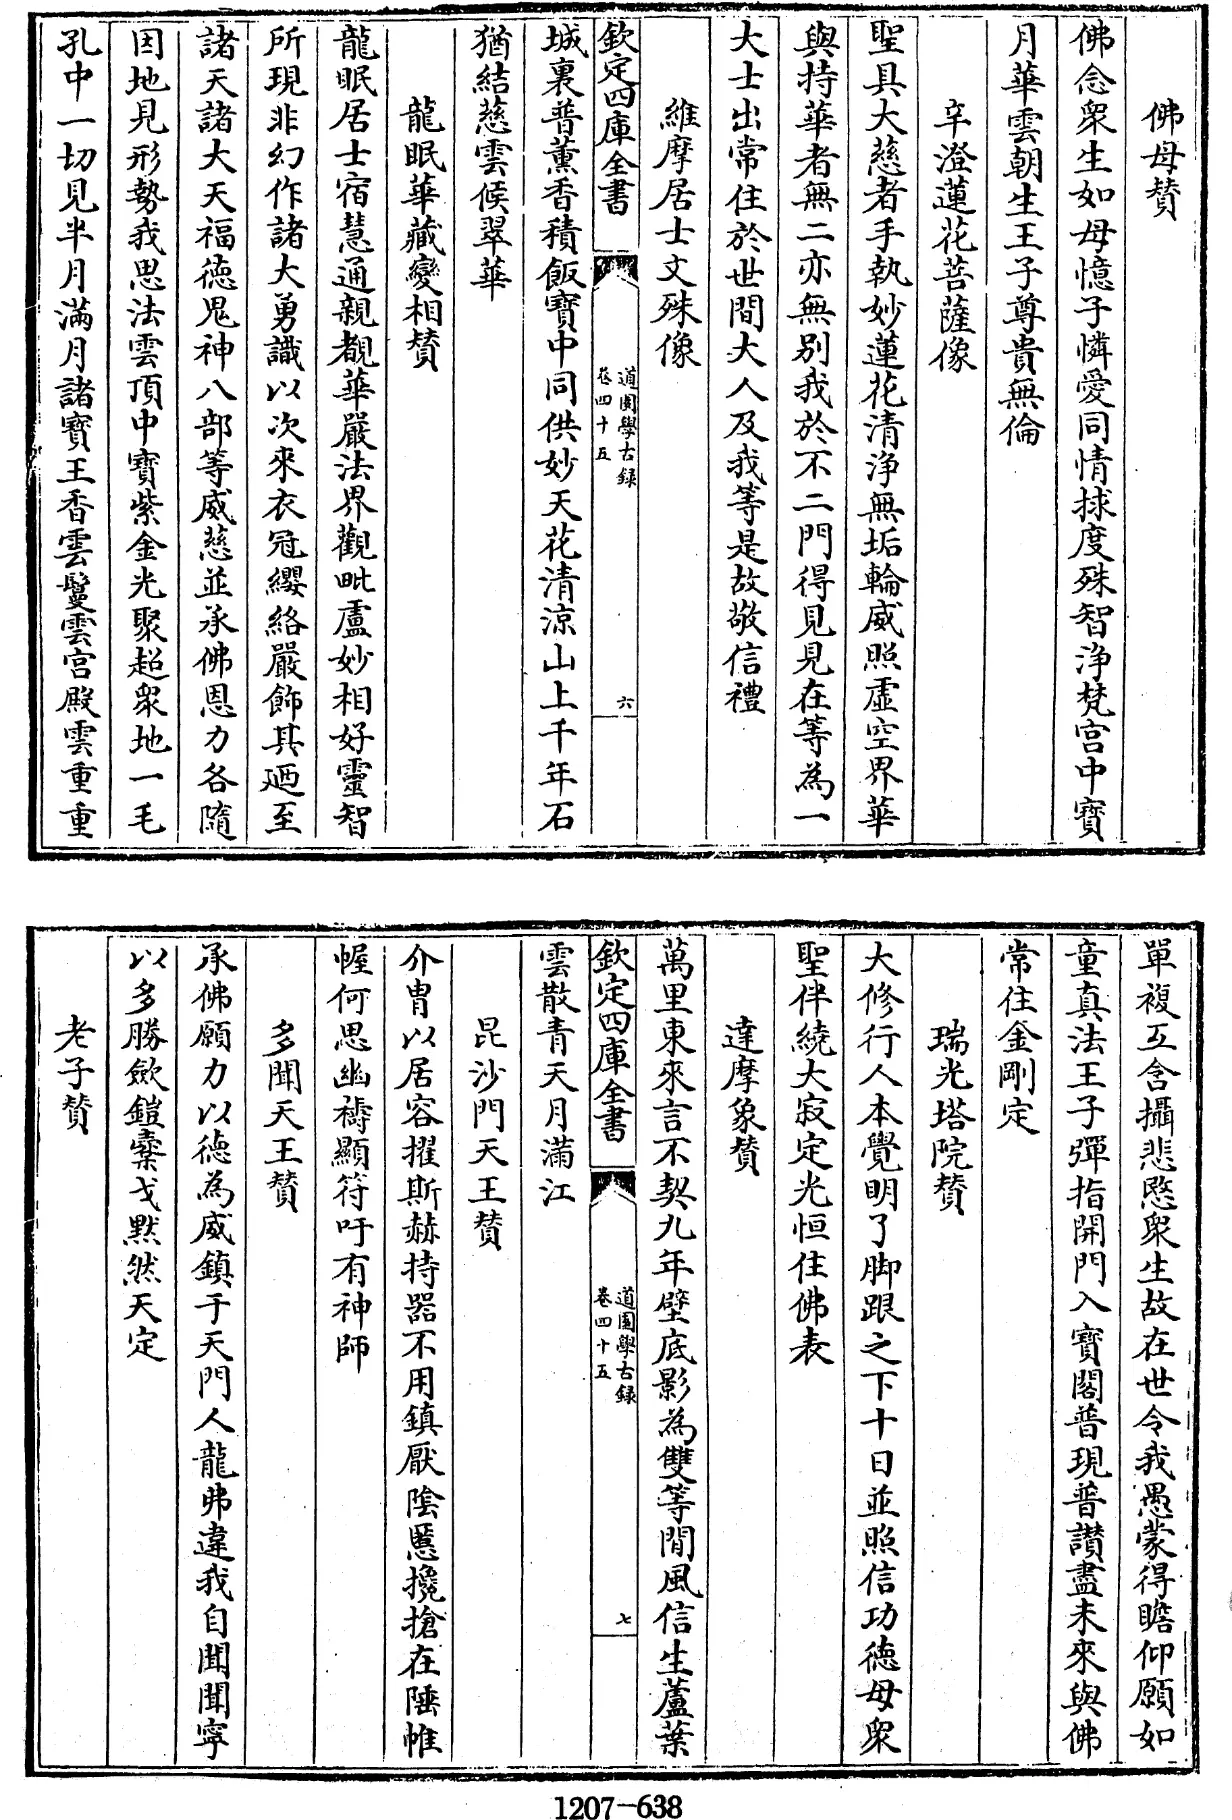 佛母贊
佛念衆生如母憶子憐愛同情捄度殊智浄梵宫中寳
月華雲朝生王子尊貴無倫
辛澄蓮花菩薩像
聖具大慈者手執妙蓮花清浄無垢輪威照虛空界華
與持華者無二亦無別我於不二門得見見在等為一
大士出常住於世間大人及我等是故敬信禮
維摩居士文殊像
欽定四庫全書
道園學古録
卷四十五
六
城裏普薰香積飯寳中同供妙天花清涼山上千年石
猶結慈雲候翠華
龍眠華藏變相贊
龍眠居士宿慧通親覩華嚴法界觀毗盧妙相好靈智
所現非幻作諸大勇識以次來衣冠纓絡嚴飾其廼至
諸天諸大天福徳鬼神八部等威慈並承佛恩力各隨
因地見形勢我思法雲頂中寳紫金光聚超衆地一毛
孔中一切見半月滿月諸寳王香雲鬘雲宫殿雲重重
單複互含攝悲愍衆生故在世令我愚蒙得瞻仰願如
童真法王子彈指開門入寳閣普現普讃盡未來與佛
常住金剛定
瑞光塔院贊
大修行人本覺明了脚跟之下十日並照信功徳母衆
聖伴繞大寂定光恒住佛表
達摩象贊
萬里東來言不契九年壁底影為雙等閒風信生蘆葉
欽定四庫全書
道園學古録
卷四十五
七
雲散青天月滿江
昆沙門天王贊
介胄以居容擢斯赫持器不用鎮厭陰慝攙搶在陲帷
幄何思幽禱顯符吁有神師
多聞天王贊
承佛願力以徳為威鎮于天門人龍弗違我自聞聞寧
以多勝斂鎧櫜戈黙然天定
老子贊
1207-638